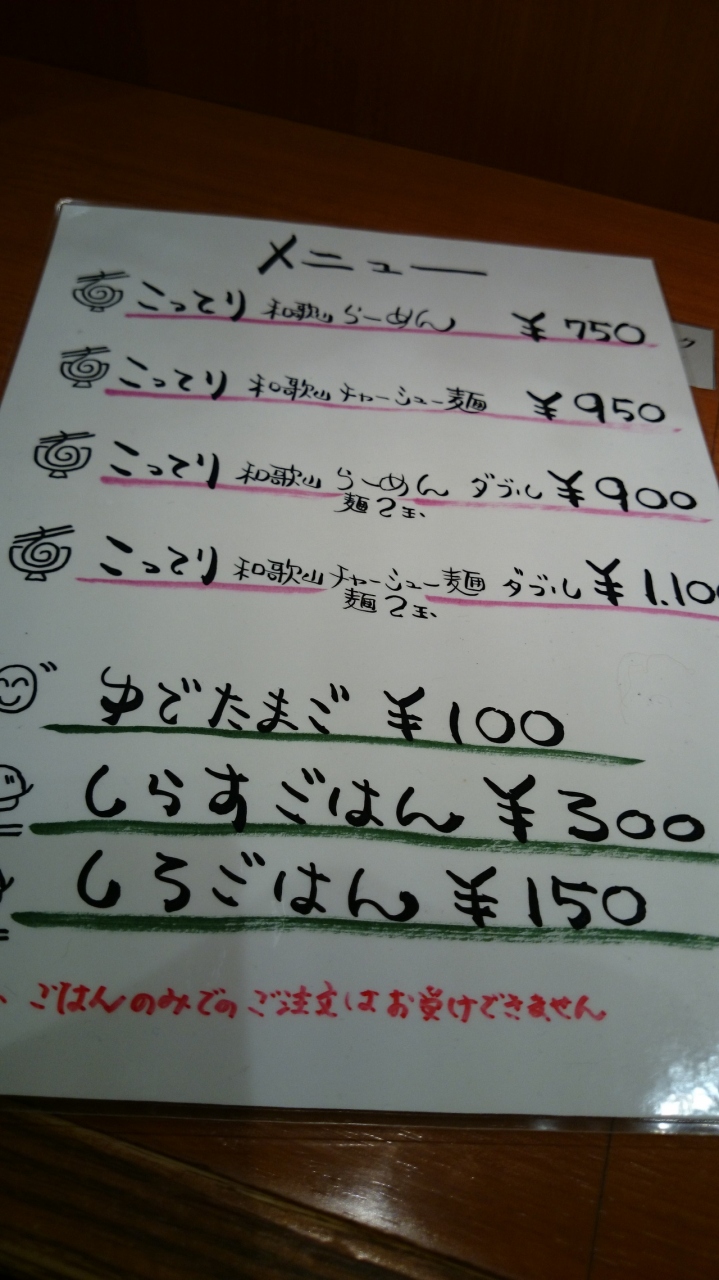 メニュー
こってり 和歌山 らーめん ¥750
こってり 和歌山 チャーシュー麺 ¥950
こってり 和歌山 らーめん ダブル ¥900
麺2玉
こってり 和歌山 チャーシュー麺 ダブル ¥1.10
麺2玉
ゆでたまご ¥100
しらすごはん ¥300
しろごはん ¥150
ごはんのみでのご注文はお受けできません